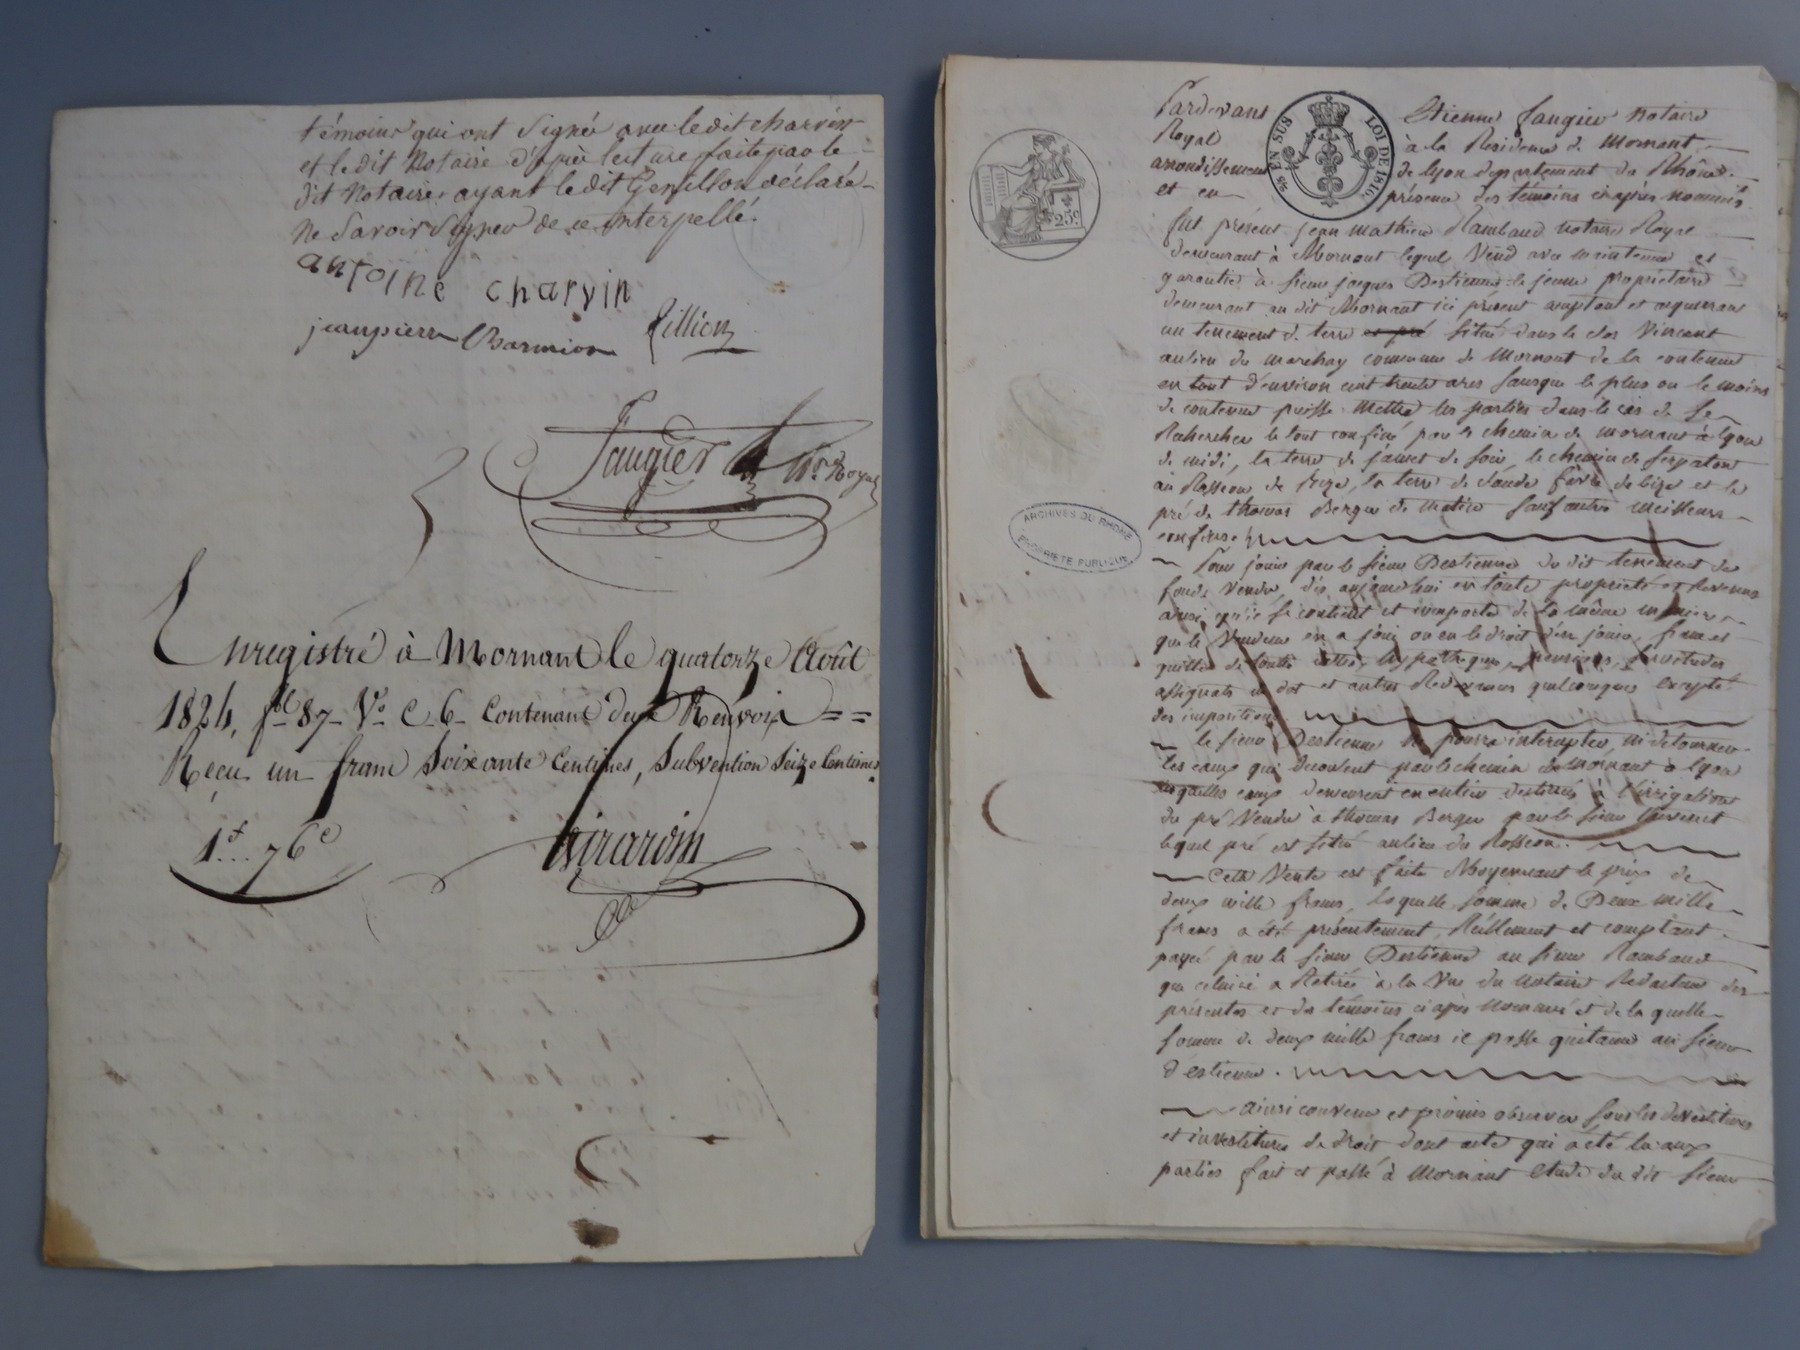 témoins qui ont signé avec le dit charvin
et le dit Notaire d'après lecture faite par le
dit Notaire, ayant le dit Genillon déclaré
ne savoir signer de ce interpellé.
antoine charvin
jeanpierre Rillion
Faugier Nre Royal
Enregistré à Mornant le quatorze Août
1824, fol 87 Vo C 6 Contenant deux Renvois
Reçu un franc soixante Centimes, Subvention Seize Centimes
1f 76c
Girardin
Pardevant Etienne faugier notaire
Royal à la Résidence de Mornant
arrondissement de lyon département du Rhône
et en présence des témoins ciaprès nommés
25 EN SUS LOI DE 1816
25c
fut présent jean mathieu Rambaud notaire Royal
demeurant à Mornant lequel Vend avec maintenue et
garantie à sieur jacques Destienne le jeune propriétaire
demeurant au dit Mornant ici présent acceptant et acquérant
un tenement de terre et pré situé dans le clos Vincent
au lieu du marchay commune de Mornant de la contenue
en tout d'environ cent trente ares sans que le plus ou le moins
de contenue puisse mettre les parties dans le cas de se
Rechercher le tout confiné par le chemin de mornant à lyon
de midi, la terre de jaumet de soir, le chemin de
au Rosseon de Bize, la terre de claude favre de bize et le
pré de thomas Berger de matin sauf autres meilleurs
confins.
ARCHIVES DU RHONE
PROPRIETE PUBLIQUE
Pour jouir par le sieur Destienne du dit tenement de
fonds vendu, dès aujourd'hui en toute propriété et Revenus
ainsi qu'il se contient et comporte de la même manière
que le Vendeur en a joui ou eu le droit d'en jouir, franc et
quitte de toutes dettes, hypothèques, pensions, servitudes
assignats de dot et autres Redevances quelconques excepté
des impositions.
le sieur Destienne ne pourra intercepter, ni détourner
les eaux qui découlent par le chemin de Mornant à lyon
lesquelles eaux demeurent en entier destinées à l'irrigation
du pré Vendu à thomas Berger par le sieur
lequel pré est situé au lieu du Rosseon.
Cette Vente est faite Moyennant le prix de
deux mille francs, laquelle somme de Deux mille
francs a été présentement, Réellement et comptant
payée par le sieur Destienne au sieur Rambaud
que celuici a Retirée à la Vue du Notaire Rédacteur des
présentes et des témoins ci après Nommés et de laquelle
somme de deux mille francs il passe quitance au sieur
d'estienne.
ainsi convenu et promis observer sous les dévestitures
et investitures de droit dont acte qui a été lu aux
parties fait et passé à Mornant étude du dit sieur